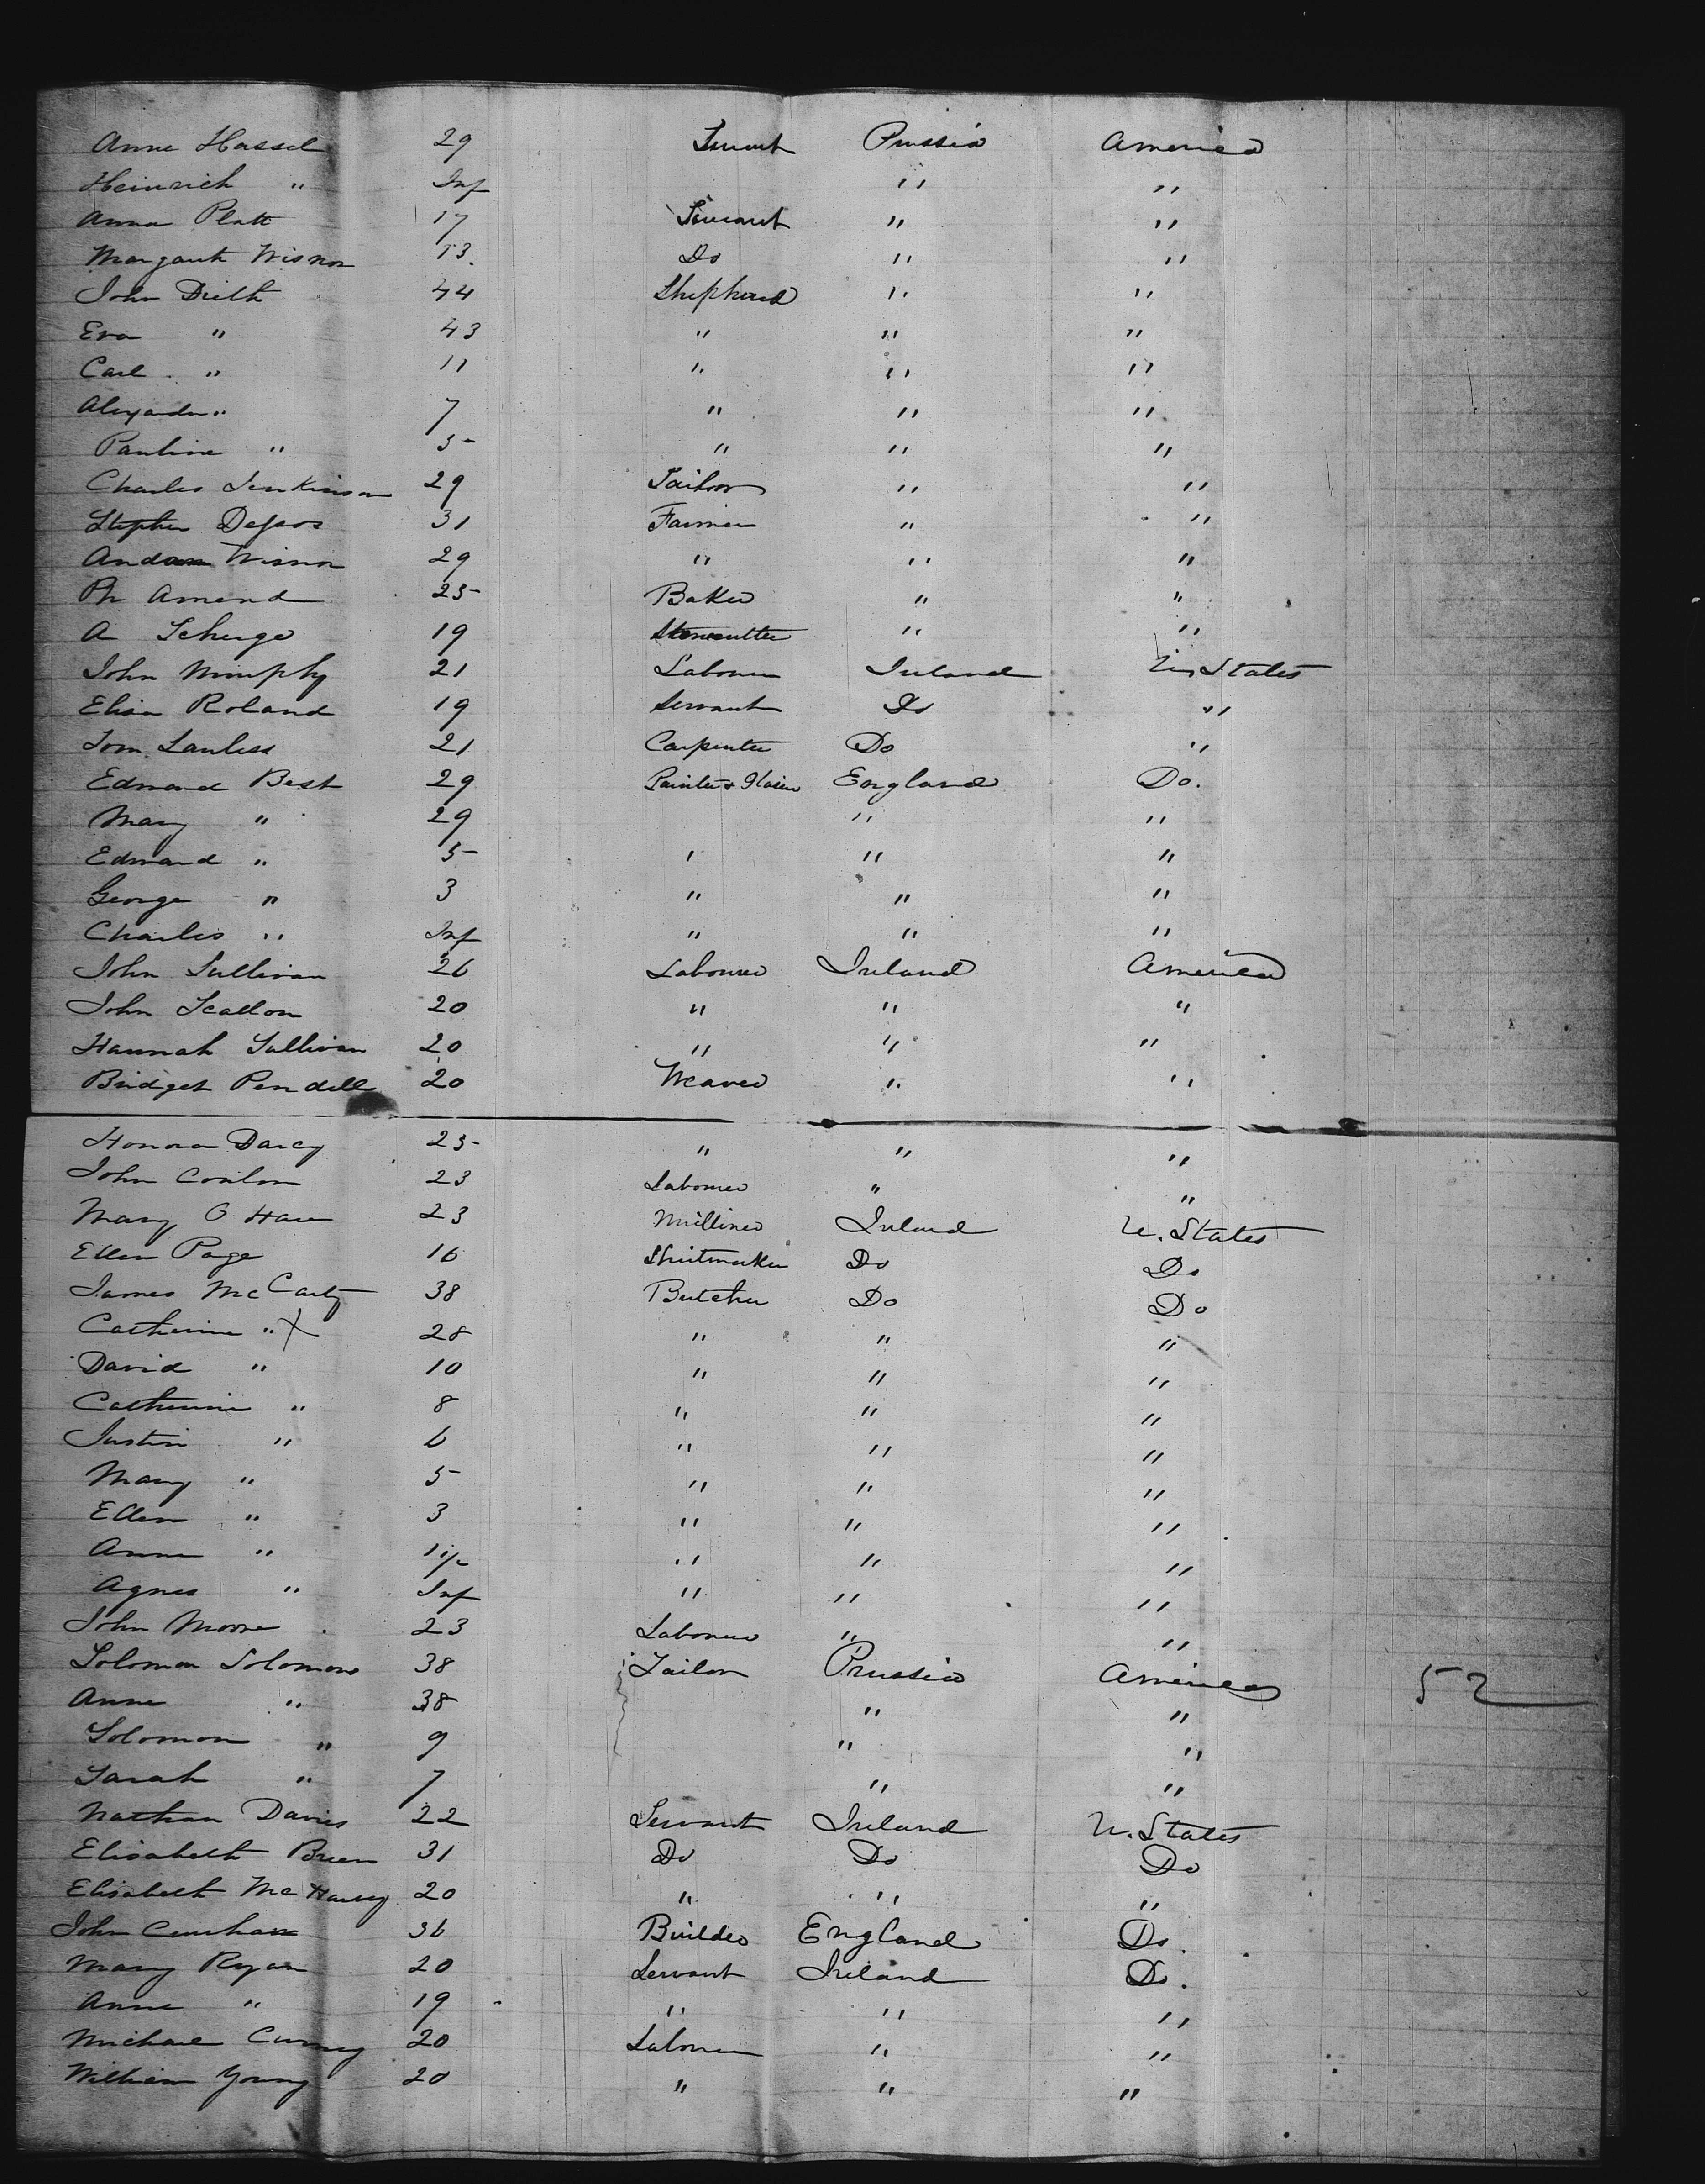 Anne Hassel 29 Servant Prussia America
Heinrich " Inf " "
Anna Platt 17 Servant " "
Margaret Wisnor 13. Do " "
John Dieth 44 Shepherd " "
Eva " 43 " " "
Carl " 11 " " "
Alexander " 7 " " "
Pauline " 5 " " "
Charles Jenkinson 29 Tailor " "
Stephen 31 Farmer " "
Wisnor 29 " " "
Ph Amend 25 Baker " "
A 19 Stonecutter " "
John Murphy 21 Labourer Ireland U. States
Elisa Roland 19 Servant Do "
Tom Lawless 21 Carpenter Do "
Edmond Best 29 Painter & Glazier England Do.
Mary " 29 " "
Edmond " 5 " " "
George " 3 " " "
Charles " Inf " " "
John Sullivan 26 Labourer Ireland America
John Scallon 20 " " "
Hannah Sullivan 20 " " "
Bridget Pendell 20 Weaver " "
Honora Darcy 25 " " "
John Conlon 23 Labourer " "
Mary O Hare 23 Milliner Ireland U. States
Ellen Page 16 Shirtmaker Do Do
James McCarty 38 Butcher Do Do
Catherine " X 28 " " "
David " 10 " " "
Catherine " 8 " " "
Justin " 6 " " "
Mary " 5 " " "
Ellen " 3 " " "
Anne " 1 1/2 " " "
Agnes " Inf " " "
John Moore 23 Labourer " "
Solomon Solomons 38 Tailor Prussia America 52
Anne " 38 " "
Solomon " 9 " "
Sarah " 7 " "
Nathan Davis 22 Servant Ireland U. States
Elisabeth Breen 31 Do Do Do
Elisabeth Mc Harvey 20 " " "
John 36 Builder England Do.
Mary Ryan 20 Servant Ireland Do.
Anne " 19 " " "
Michael 20 Labourer " "
William Young 20 " " "